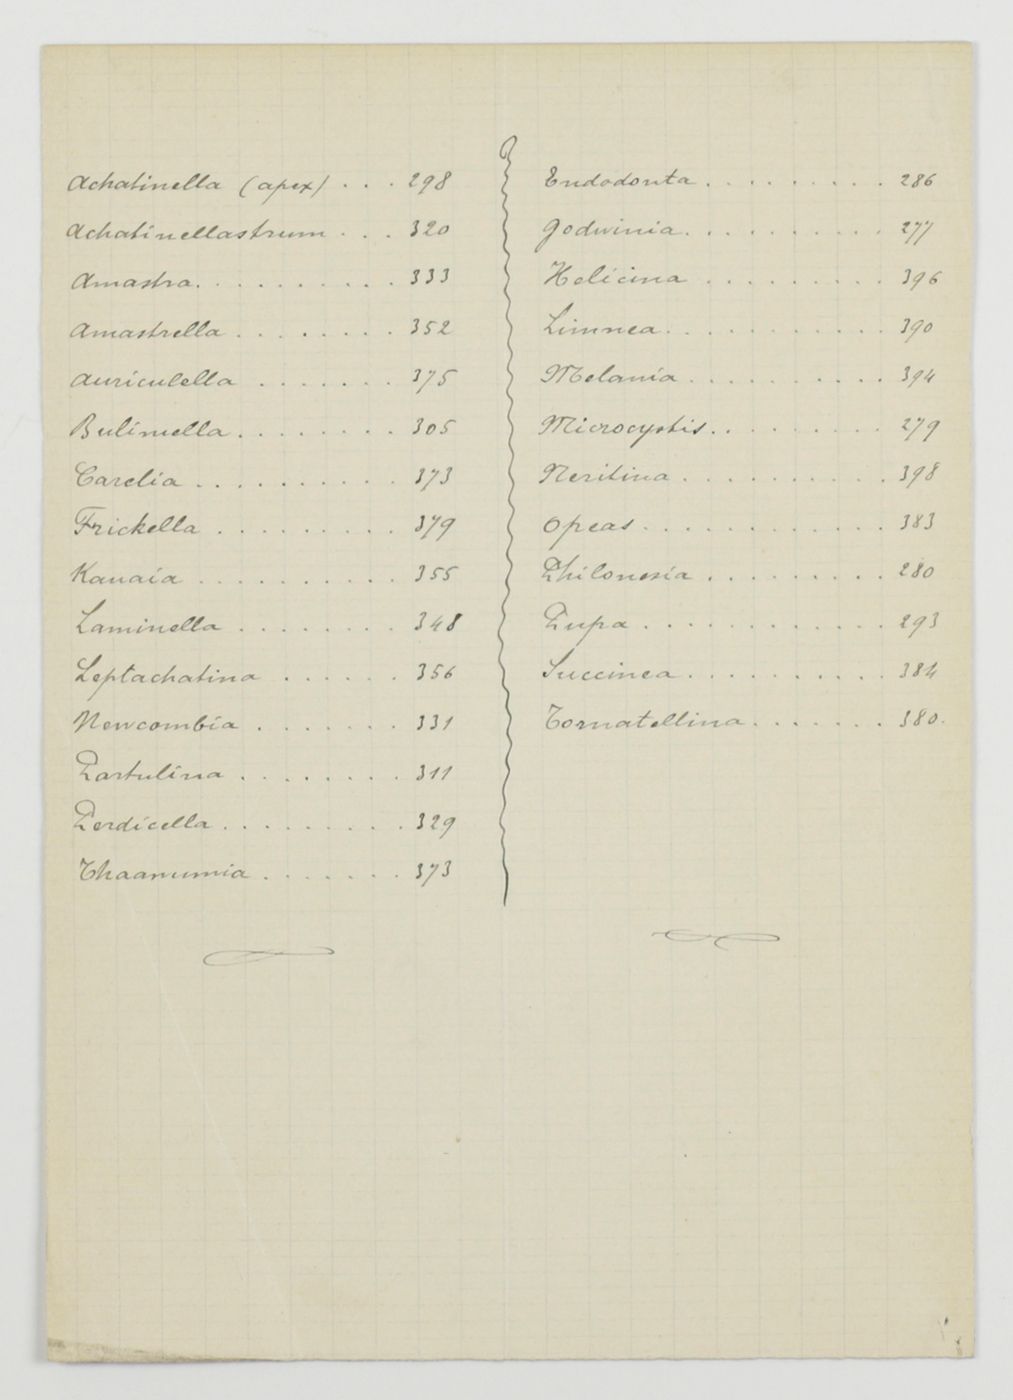 Achatinella (apex) . . . 298
Achatinellastrum . . . 320
Amastra. . . . . . . . . . 333
Amastrella . . . . . . . . 352
Auriculella . . . . . . . 375
Bulimella . . . . . . . . 305
Carelia . . . . . . . . . . 373
Frickella . . . . . . . . . 379
Kauaia . . . . . . . . . . 355
Laminella . . . . . . . . 348
Leptachatina . . . . . . 356
Newcombia . . . . . . . 331
Partulina . . . . . . . . 311
Perdicella . . . . . . . . . 329
Thaanumia . . . . . . . 373
Endodonta . . . . . . . . . 286
Godwinia. . . . . . . . . . 277
Helicina . . . . . . . . . 396
Limnea. . . . . . . . . . . 390
Melania . . . . . . . . . . 394
Microcystis. . . . . . . . . 279
Neritina . . . . . . . . . . 398
Opeas . . . . . . . . . . . . 383
Philonesia . . . . . . . . . 280
Pupa . . . . . . . . . . . . 293
Succinea . . . . . . . . . . 384
Tornatellina . . . . . . . 380.